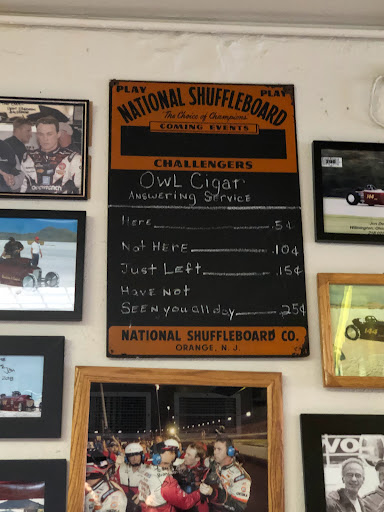 PLAY PLAY
NATIONAL SHUFFLEBOARD
The Choice of Champions
COMING EVENTS
CHALLENGERS
OWL Cigar
Answering Service
Here .5¢
Not Here .10¢
Just Left .15¢
Have not
SEEN you all day 25¢
NATIONAL SHUFFLEBOARD CO.
ORANGE, N. J.